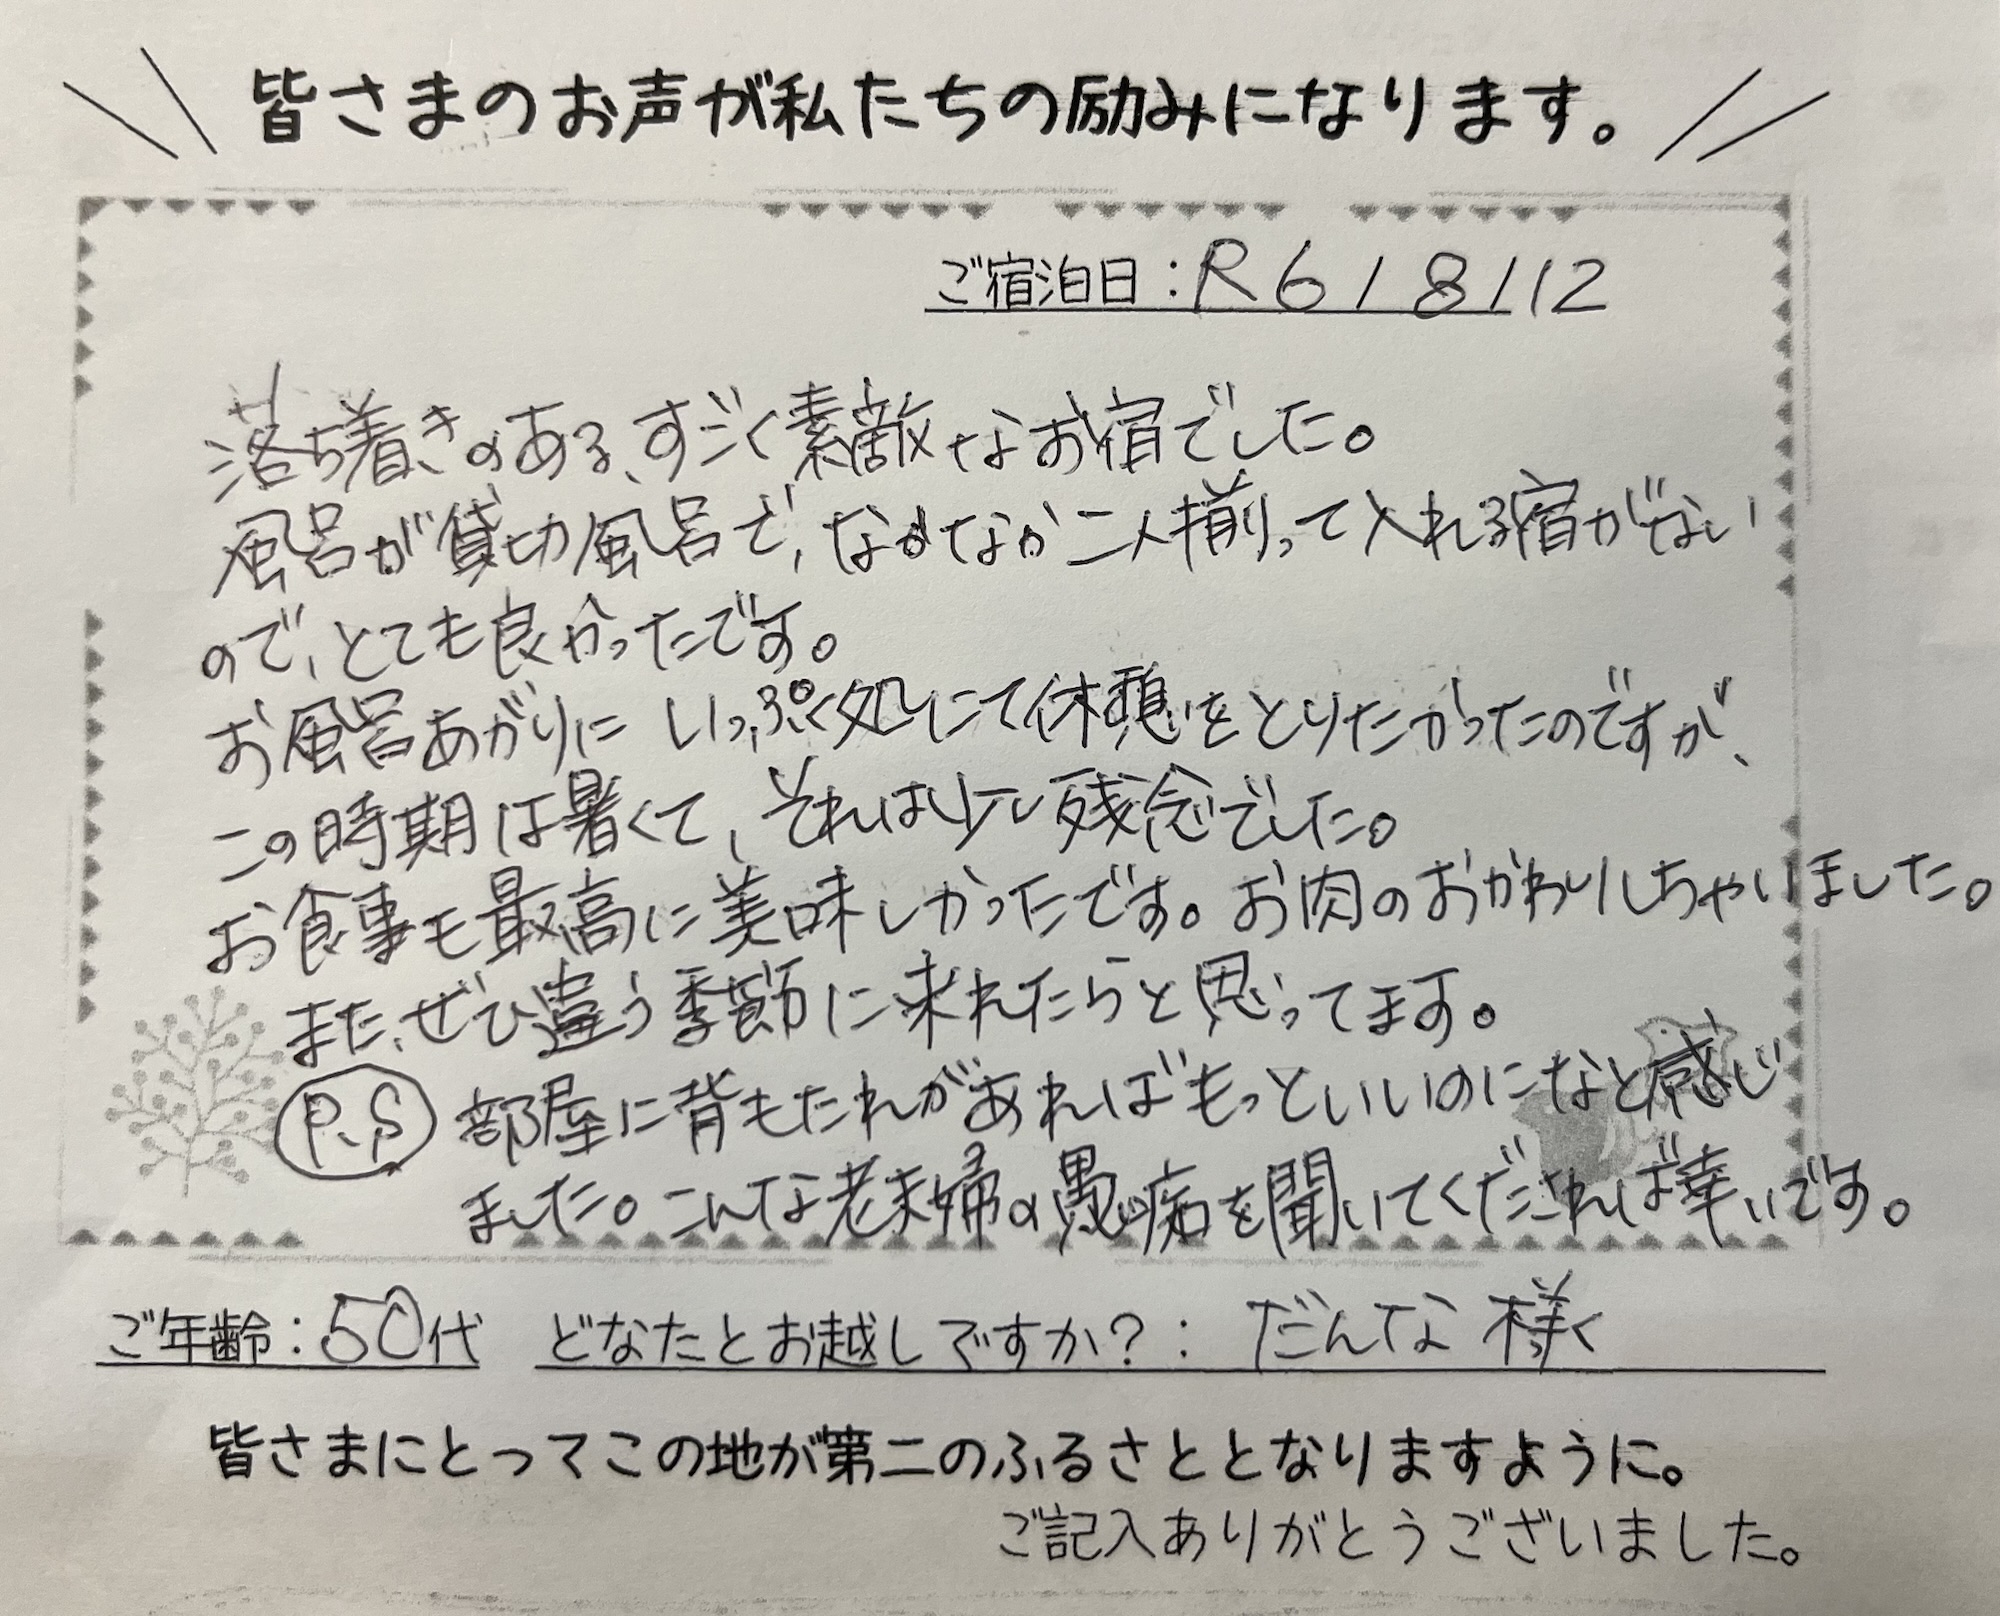 皆さまのお声が私たちの励みになります。
ご宿泊日：R6/8/12
落ち着きのある、すごく素敵なお宿でした。
風呂が貸切風呂で、なかなか二人揃って入れる宿がない
ので、とても良かったです。
お風呂あがりにいっぷく処にて休憩をとりたかったのですが、
この時期は暑くて、それは少し残念でした。
お食事も最高に美味しかったです。お肉のおかわりしちゃいました。
また、ぜひ違う季節に来れたらと思ってます。
P.S 部屋に背もたれがあればもっといいのになと感じ
ました。こんな老夫婦の愚痴を聞いてくだされば幸いです。
ご年齢：50代 どなたとお越しですか？：だんな様
皆さまにとってこの地が第二のふるさととなりますように。
ご記入ありがとうございました。